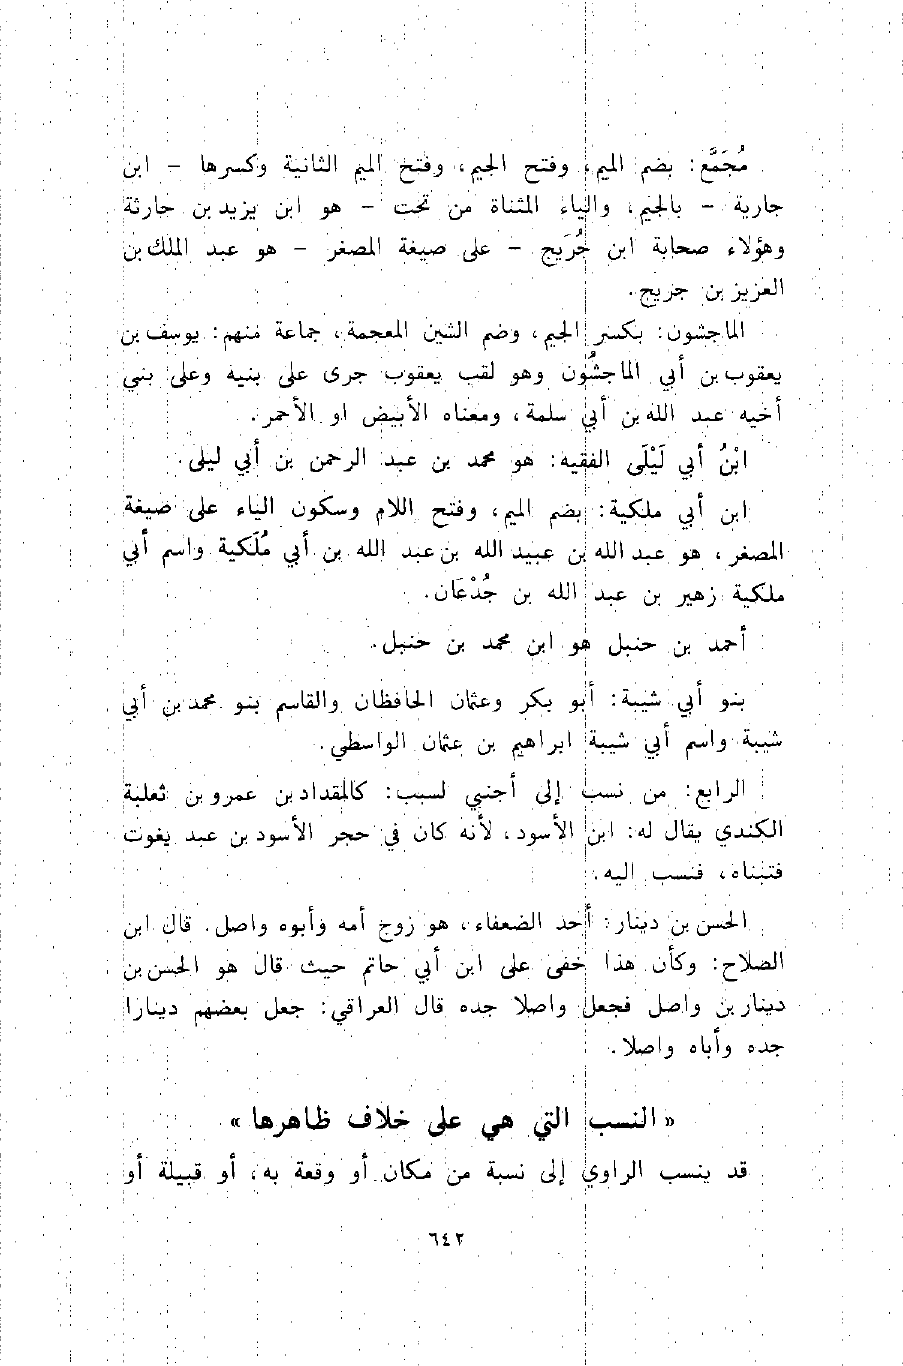 مُجَمَّع: بضم الميم، وفتح الجيم، وفتح الميم الثانية وكسرها - ابن
جارية - بالجيم، والياء المثناة من تحت - هو ابن يزيد بن حارثة
وهؤلاء صحابة ابن جُرَيج - على صيغة المصغر - هو عبد الملك بن
العزيز بن جريج.
الماجشون: بكسر الجيم، وضم الشين المعجمة، جماعة منهم: يوسف بن
يعقوب بن أبي الماجشُون وهو لقب يعقوب جرى على بنيه وعلى بني
أخيه عبد الله بن أبي سلمة، ومعناه الأبيض او الأحمر.
ابْنُ أبي لَيْلَى الفقيه: هو محمد بن عبد الرحمن بن أبي ليلى.
ابن أبي ملكية: بضم الميم، وفتح اللام وسكون الياء على صيغة
المصغر، هو عبد الله بن عبيد الله بن عبد الله بن أبي مُلَكية واسم أبي
ملكية زهير بن عبد الله بن جُدْعَان.
أحمد بن حنبل هو ابن محمد بن حنبل.
بنو أبي شيبة: أبو بكر وعثمان الحافظان والقاسم بنو محمد بن أبي
شيبة واسم أبي شيبة ابراهيم بن عثمان الواسطي.
الرابع: من نسب إلى أجنبي لسبب: كالمقداد بن عمرو بن ثعلبة
الكندي يقال له: ابن الأسود، لأنه كان في حجر الأسود بن عبد يغوت
فتبناه، فنسب اليه.
الحسن بن دينار: أحد الضعفاء، هو زوج أمه وأبوه واصل. قال ابن
الصلاح: وكأن هذا خفى على ابن أبي حاتم حيث قال هو الحسن بن
دينار بن واصل فجعل واصلا جده قال العراقي: جعل بعضهم دينارا
جده وأباه واصلا.
« النسب التي هي على خلاف ظاهرها »
قد ينسب الراوي إلى نسبة من مكان أو وقعة به، أو قبيلة أو
٦٤٢